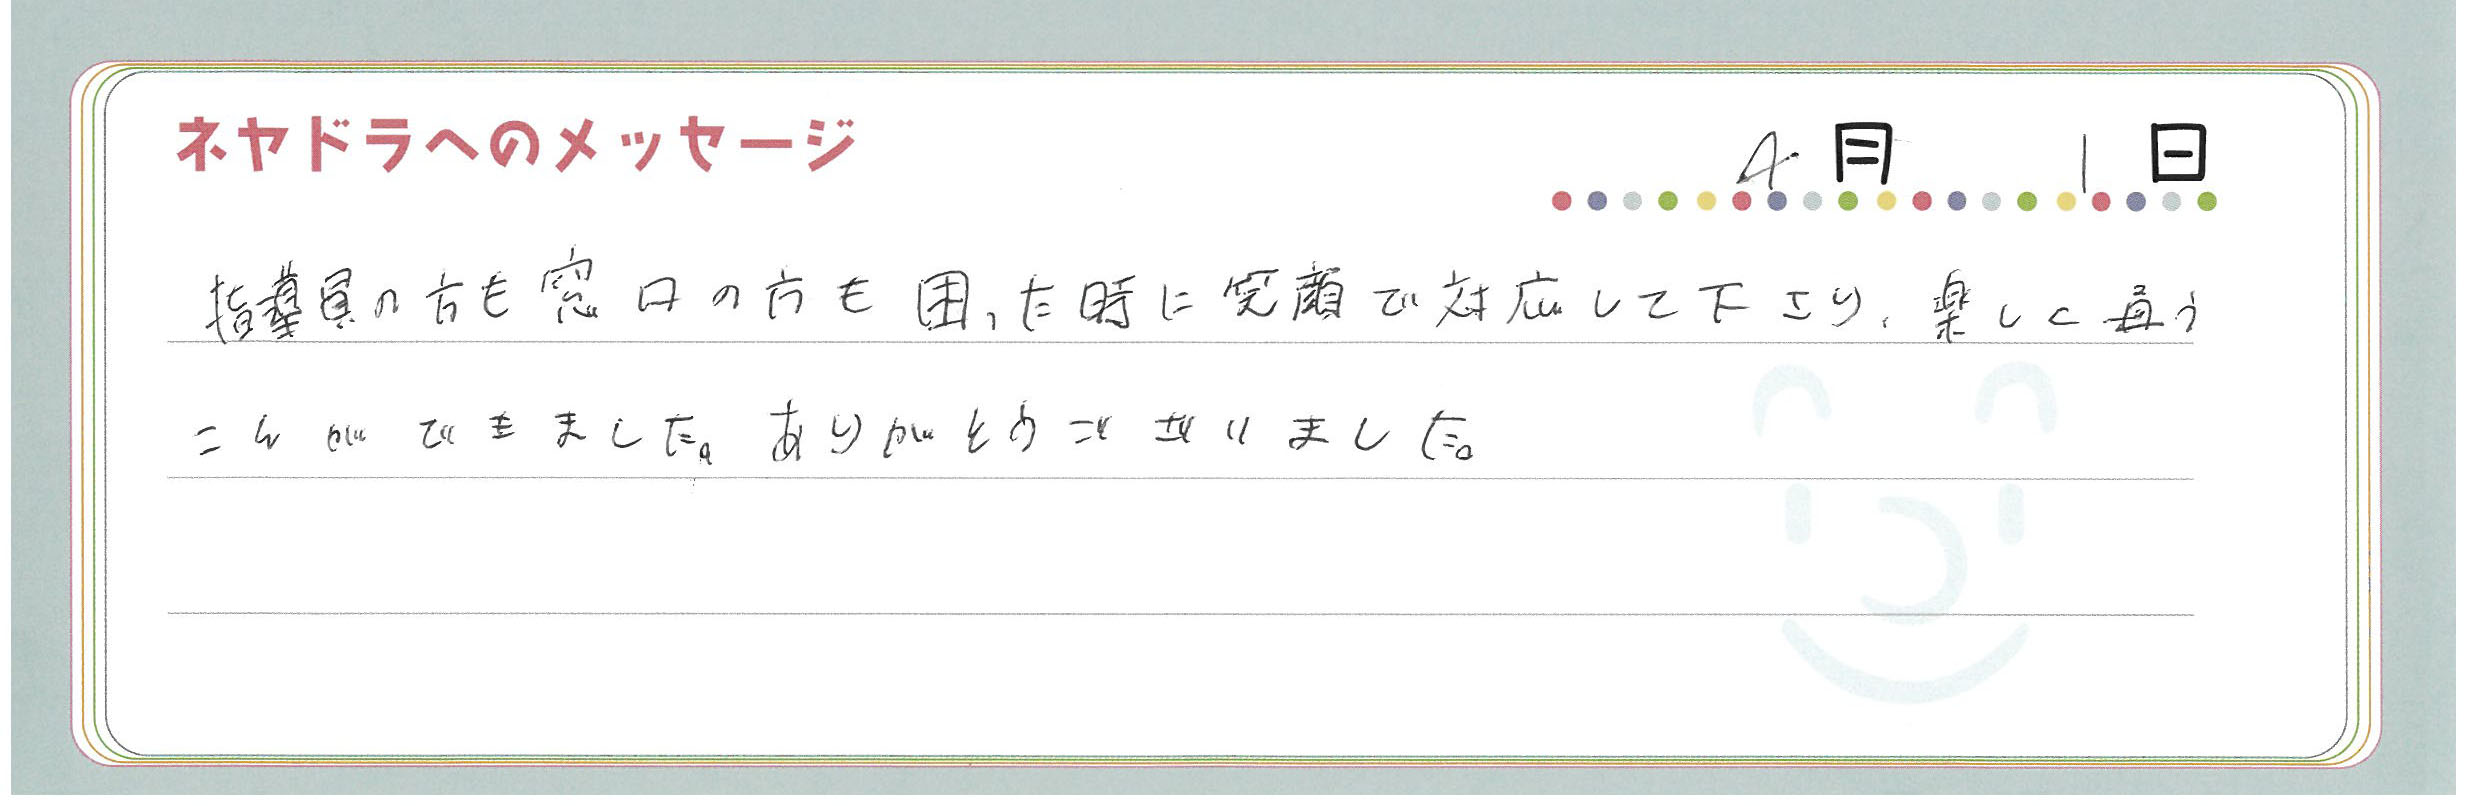 ネヤドラへのメッセージ
4月 1日
指導員の方も窓口の方も困った時に笑顔で対応して下さり、楽しく通う
ことができました。ありがとうございました。